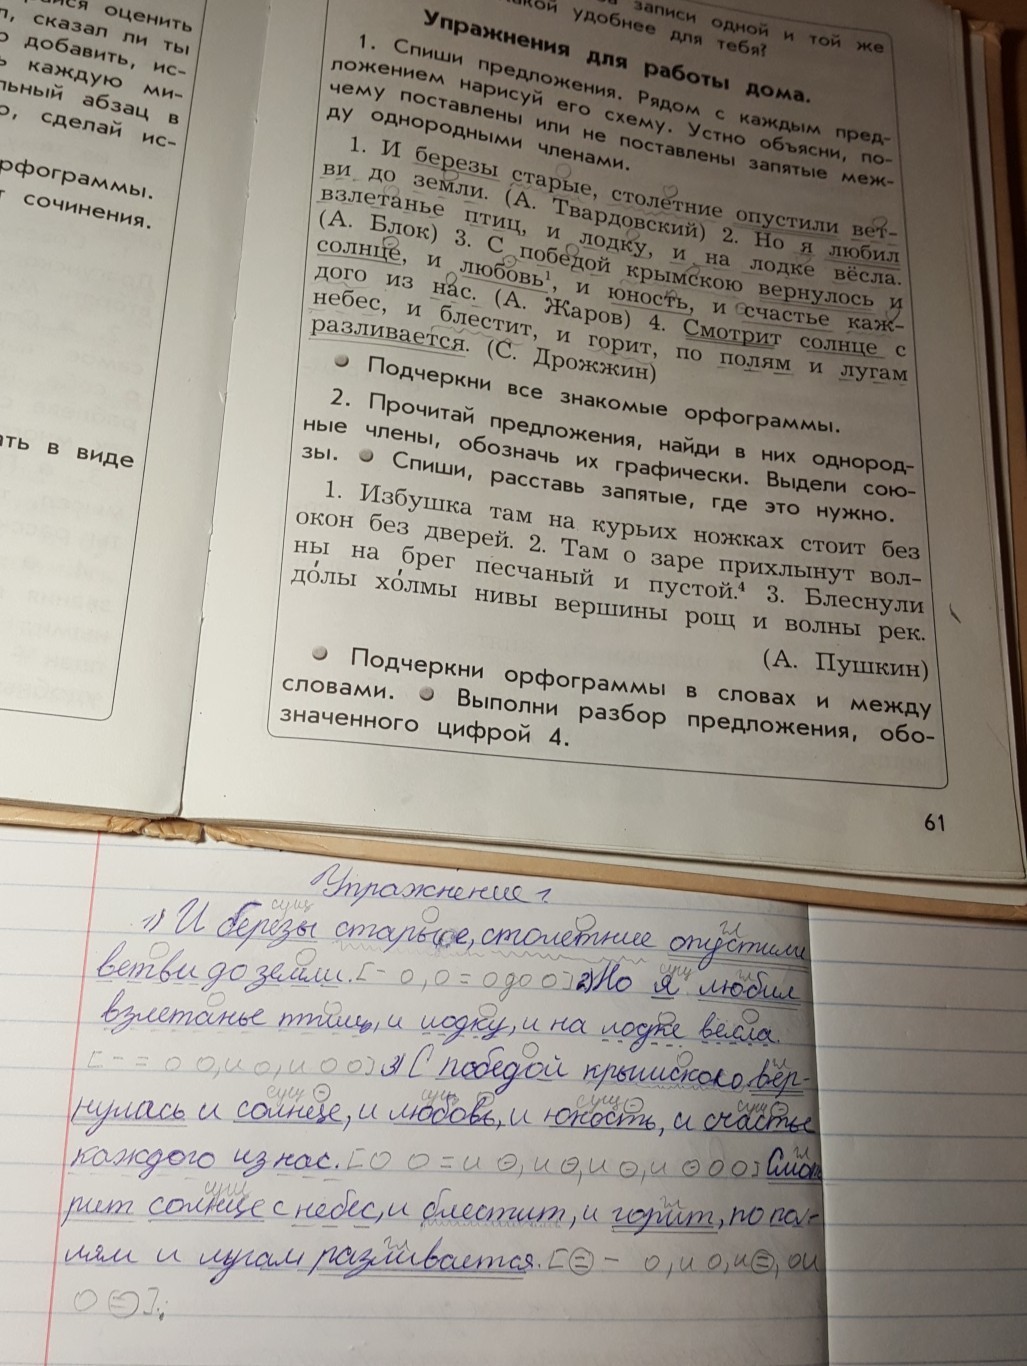 ся оценить
, сказал ли ты
добавить, ис-
каждую ми-
льный абзац в
о, сделай ис-
рфограммы.
сочинения.
ать в виде
записи одной и той же
кой удобнее для тебя?
Упражнения для работы дома.
1. Спиши предложения. Рядом с каждым пред-
ложением нарисуй его схему. Устно объясни, по-
чему поставлены или не поставлены запятые меж-
ду однородными членами.
1. И березы старые, столетние опустили вет-
ви до земли. (А. Твардовский) 2. Но я любил
взлетанье птиц, и лодку, и на лодке вёсла.
(А. Блок) 3. С победой крымскою вернулось и
солнце, и любовь¹, и юность, и счастье каж-
дого из нас. (А. Жаров) 4. Смотрит солнце с
небес, и блестит, и горит, по полям и лугам
разливается. (С. Дрожжин)
Подчеркни все знакомые орфограммы.
2. Прочитай предложения, найди в них однород-
ные члены, обозначь их графически. Выдели сою-
зы. Спиши, расставь запятые, где это нужно.
1. Избушка там на курьих ножках стоит без
окон без дверей. 2. Там о заре прихлынут вол-
ны на брег песчаный и пустой.⁴ 3. Блеснули
до́лы хо́лмы нивы вершины рощ и волны рек.
(А. Пушкин)
Подчеркни орфограммы в словах и между
словами. Выполни разбор предложения, обо-
значенного цифрой 4.
61
Упражнение 1.
1) И берёзы старые, столетние опустили
ветви до земли. [– О, О = О до О] 2) Но я любил
взлетанье птиц, и лодку, и на лодке вёсла.
[– = О О, и О, и О О] 3) С победой крымскою вер-
нулась и солнце, и любовь, и юность, и счастье
каждого из нас. [О О = и О, и О, и О, и О О О] Смот
рит солнце с небес, и блестит, и горит, по по-
лям и лугам разливается. [⊜ – О, и О, и ⊜, О и
О ⊜].